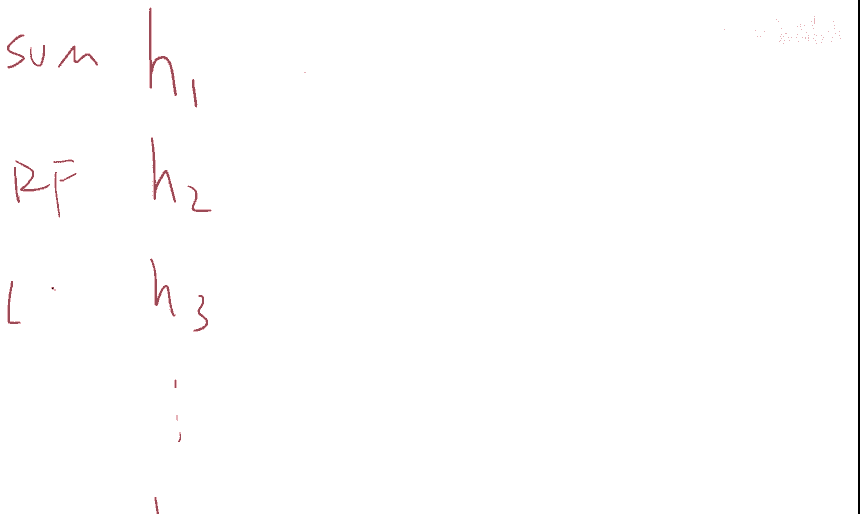 SUM h₁
RF h₂
L h₃
⋮